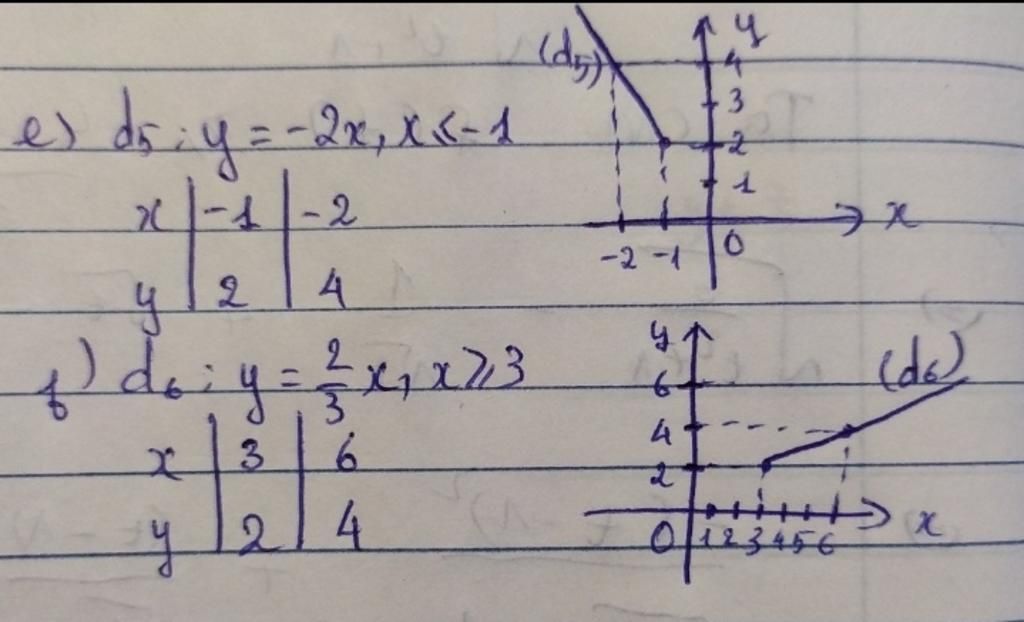 e) d5 : y = -2x, x ≤ -1
x | -1 | -2
y | 2 | 4
(d5)
y
4
3
2
1
-2 -1 0 x
f) d6 : y = 2/3 x, x ⩾ 3
x | 3 | 6
y | 2 | 4
y
(d6)
6
4
2
0 1 2 3 4 5 6 x